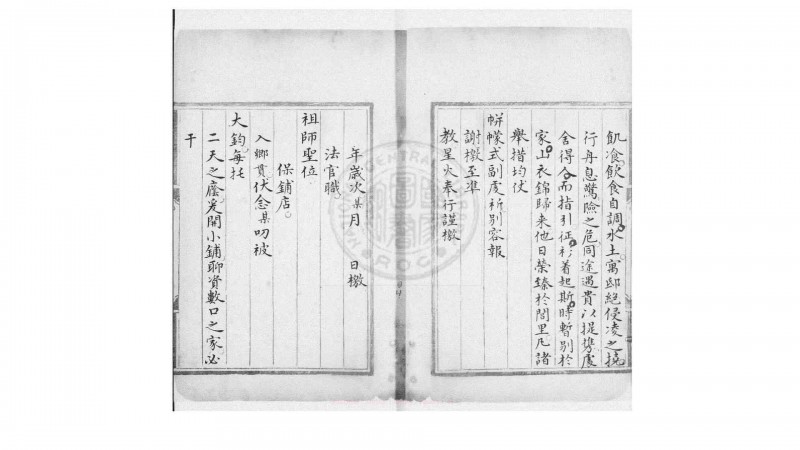 飢食飲食自調水土寓邸絕侵凌之撓
行舟息驚險之危同途遇貴以提携處
舍得合而指引征衫着起斯時暫別於
家山衣錦歸来他日榮臻於閭里凡諸
舉措均伏
帡幪式副虔祈別容報
謝檄至準
教星火奉行謹檄
年歲次某月 日檄
法官職
祖師聖位
保鋪店
入鄉貫伏念某叨被
大鈞每托
二天之廕爰開小鋪聊資數口之家必
干